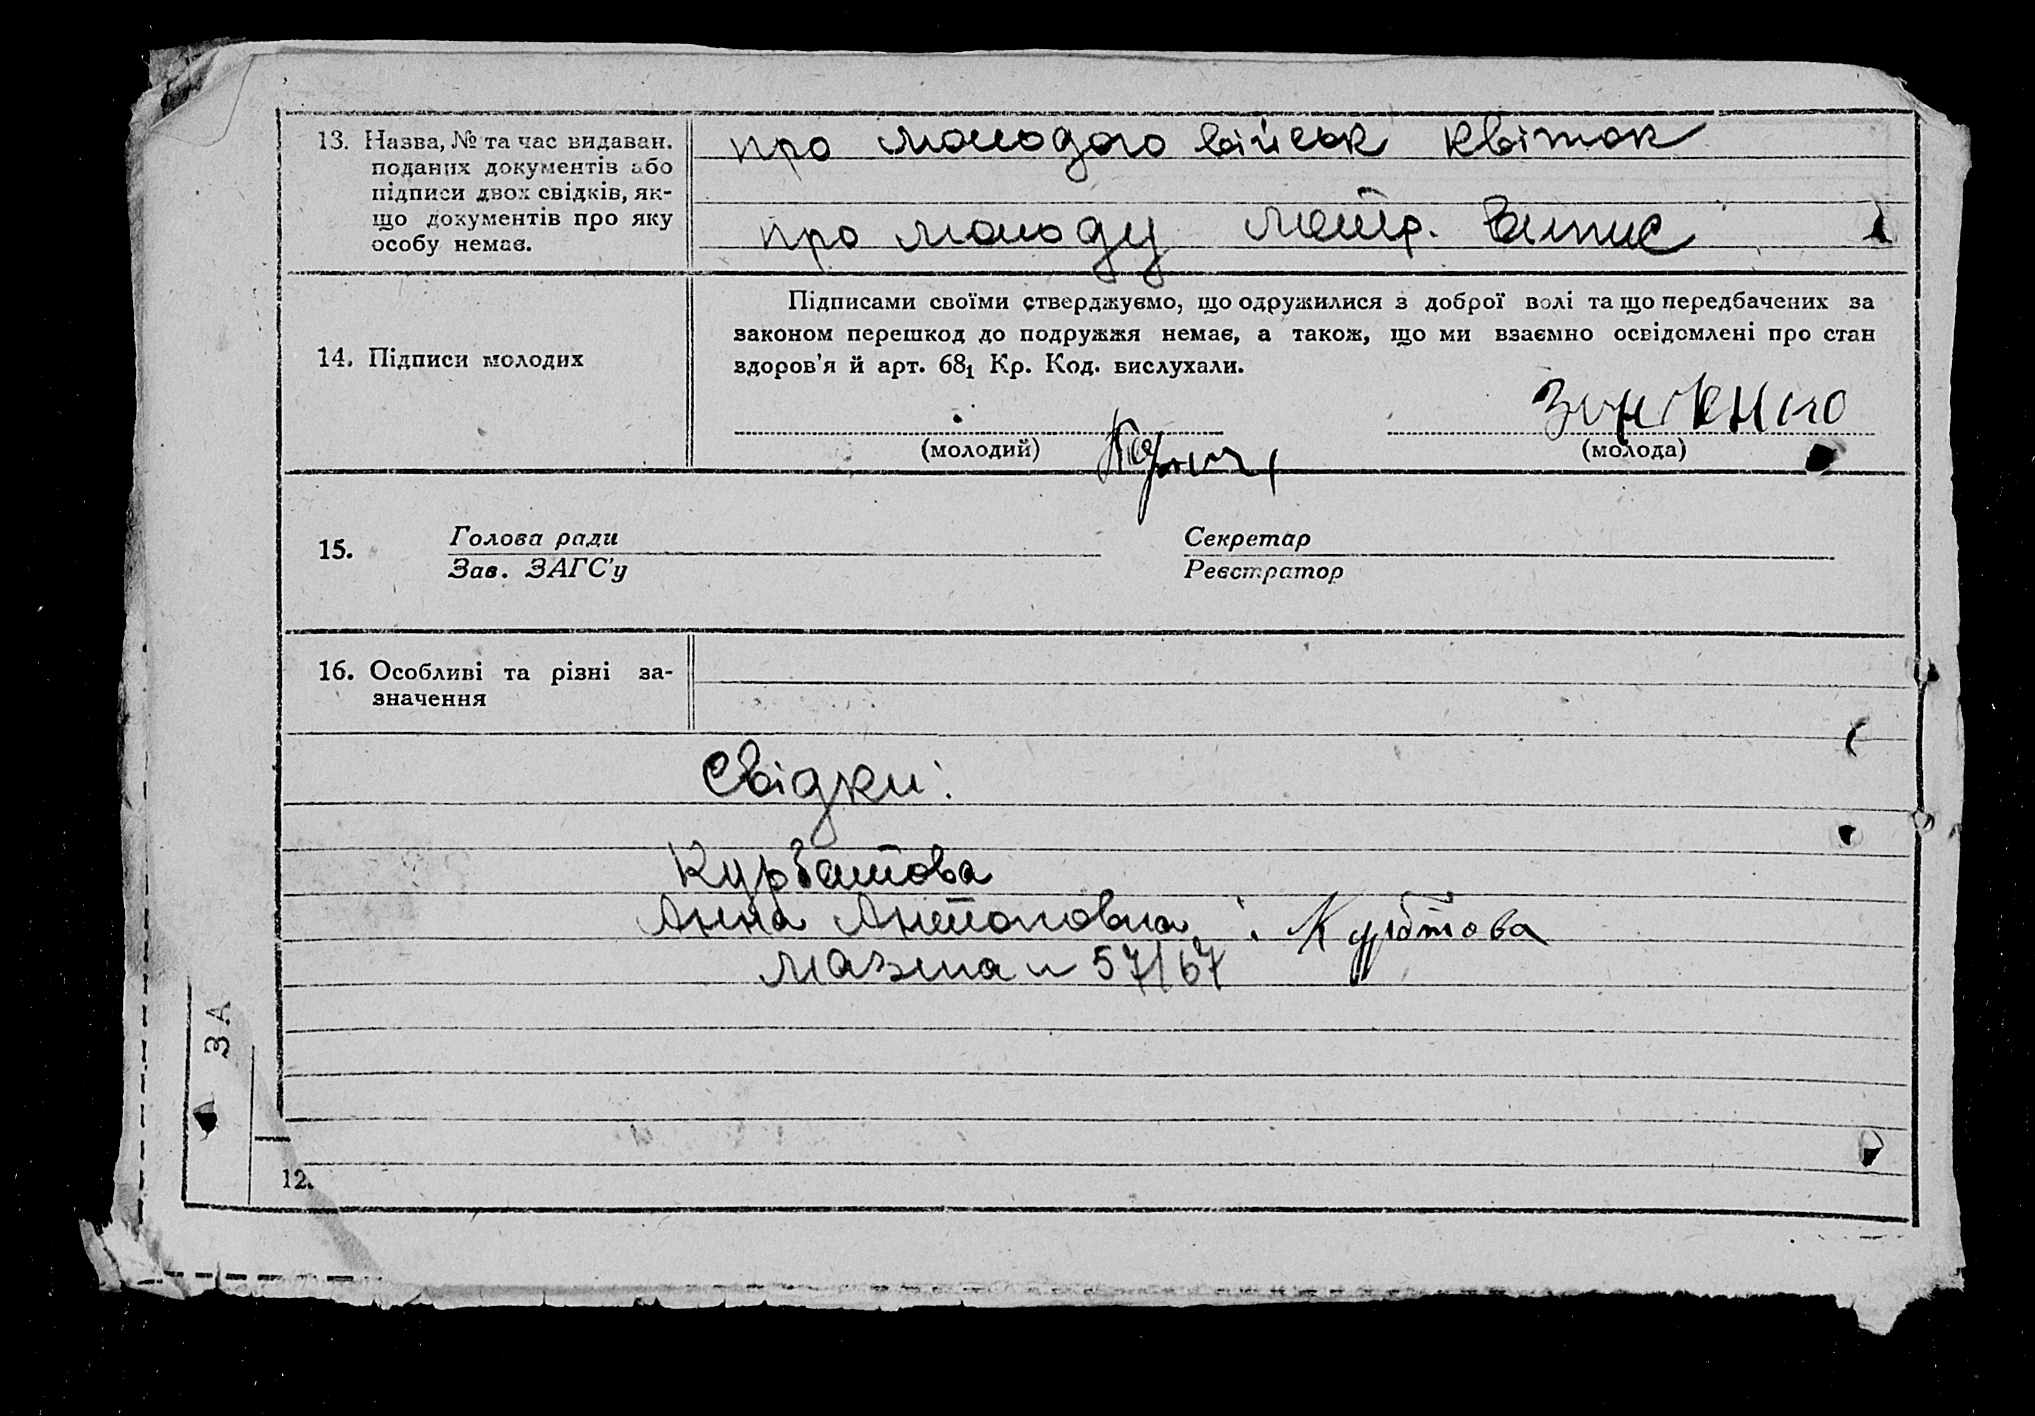 13. Назва, № та час видаван.
поданих документів або
підписи двох свідків, як-
що документів про яку
особу немає.
про молодого військ квиток
про молоду метр. витис
14. Підписи молодих
Підписами своїми стверджуємо, що одружилися з доброї волі та що передбачених за
законом перешкод до подружжя немає, а також, що ми взаємно освідомлені про стан
здоров'я й арт. 68₁ Кр. Код. вислухали.
(молодий)
(молода)
15.
Голова ради
Зав. ЗАГС'у
Секретар
Реєстратор
16. Особливі та різні за-
значення
Свідки:
Курбатова
Анна Антоновна
Курбтова
57/67
ЗА
12.